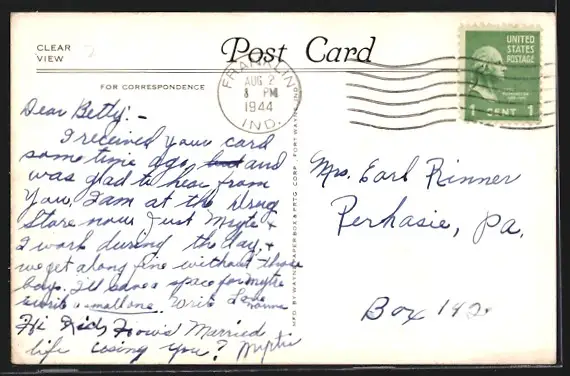 CLEAR
VIEW
Post Card
FOR CORRESPONDENCE
FRANKLIN
AUG 2
8 PM
1944
IND.
UNITED
STATES
POSTAGE
1 CENT 1
Dear Betty:-
I received your card
some time ago, and
was glad to hear from
you. I am at the Drug
Store now. Just Myrte +
I work during the day, +
we get along fine without those
boys. I'll save space for Myrte
a small one. Write
Hi Hows Married
life using you? Myrtie
Mrs. Earl Rinner
Perkasie, Pa.
Box 142